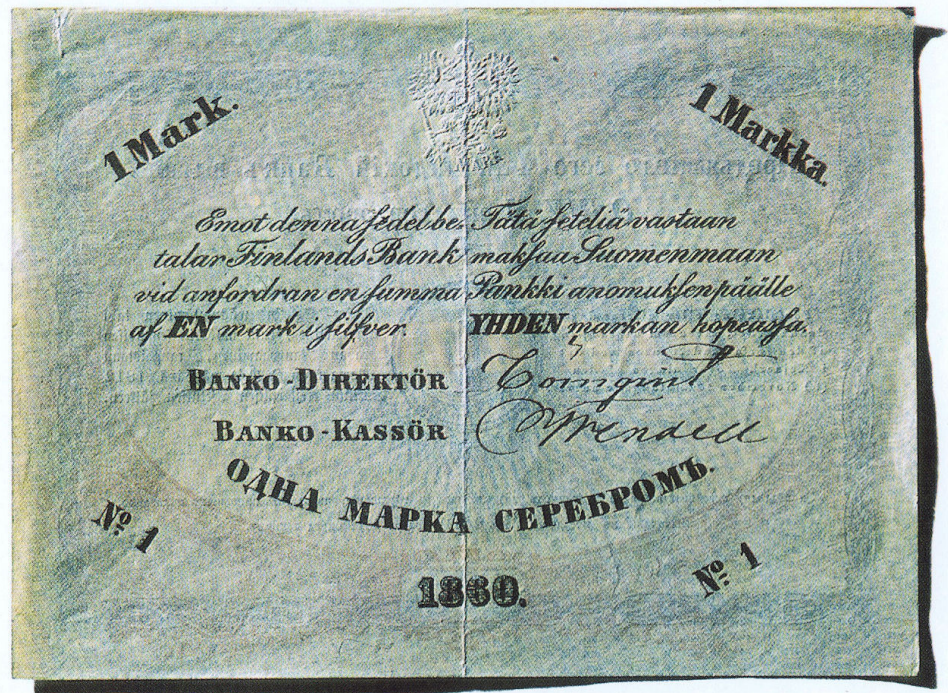 1 Mark.
1 Markka.
EN MARK
Emot denna sedel be-
talar Finlands Bank
vid anfordran en summa
af EN mark i silfver.
Tätä seteliä vastaan
maksaa Suomenmaan
Pankki anomuksen päälle
YHDEN markan hopeassa.
BANKO-DIREKTÖR
BANKO-KASSÖR
ОДНА МАРКА СЕРЕБРОМЪ.
№ 1
№ 1
1860.